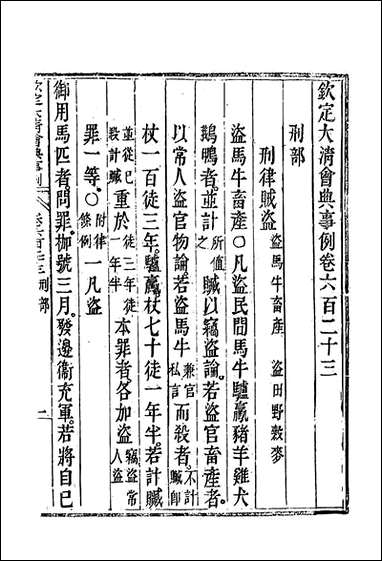 欽定大清會典事例卷六百二十三
刑部
刑律賊盜 盜馬牛畜產 盜田野穀麥
盜馬牛畜產○凡盜民間馬牛驢驘豬羊雞犬
鵝鴨者並計所值之贓以竊盜論若盜官畜產者
以常人盜官物論若盜馬牛兼官私言而殺者不計贓卽
杖一百徒三年驢驘杖七十徒一年半若計贓
並從已殺計贓重於徒三年徒一年半本罪者各加盜竊盜常人盜
罪一等○附律條例一凡盜
御用馬匹者問罪枷號三月發邊衞充軍若將自己
欽定大清會典事例 卷六百二十三 刑部 一